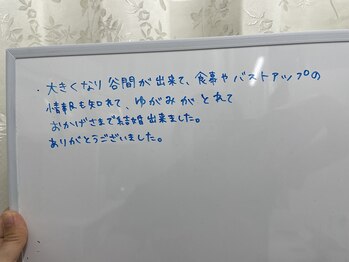 ・大きくなり谷間が出来て、食事やバストアップの
情報も知れて、ゆがみがとれて
おかげさまで結婚出来ました。
ありがとうございました。